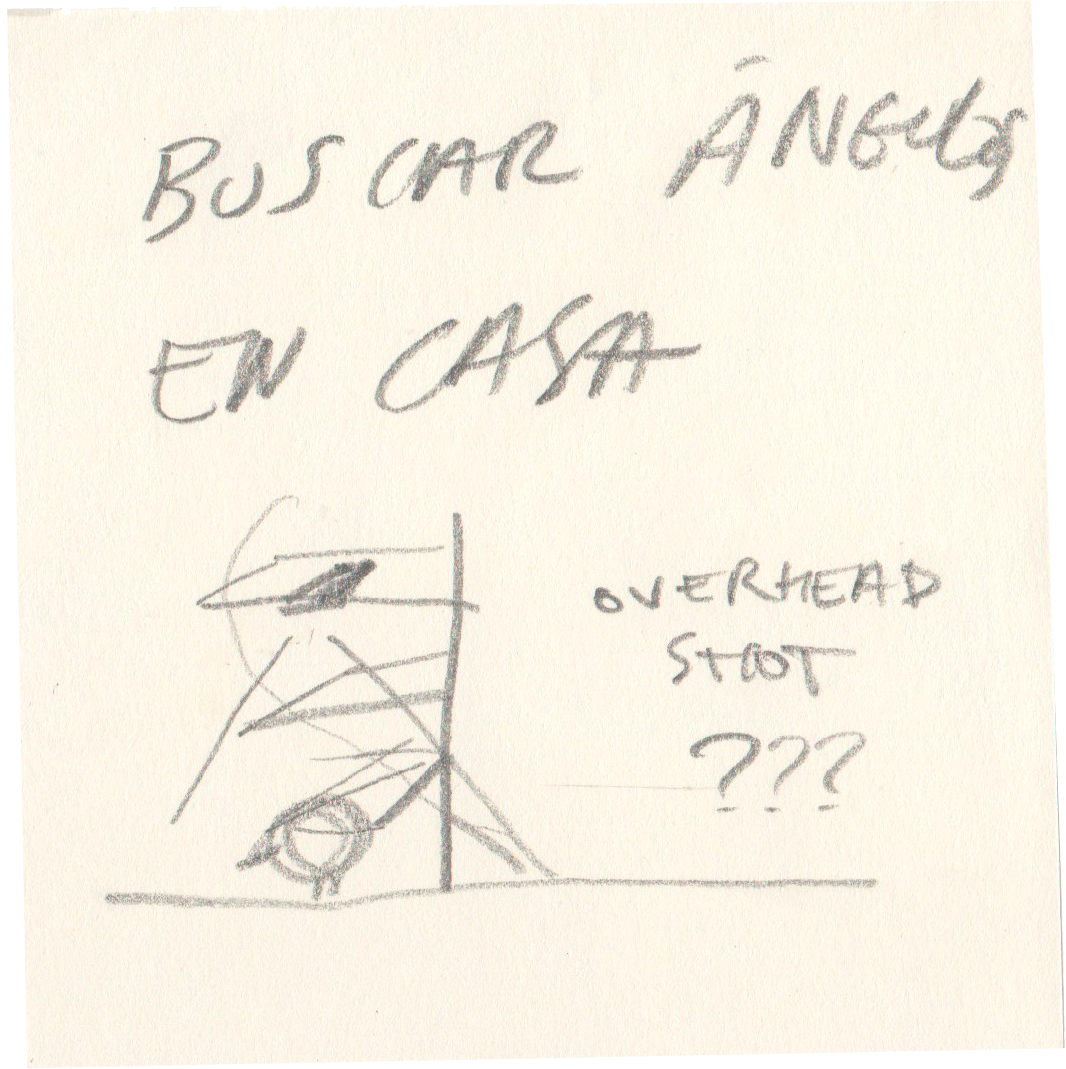 BUSCAR ÁNGULOS
EN CASA
OVERHEAD
SHOT
???